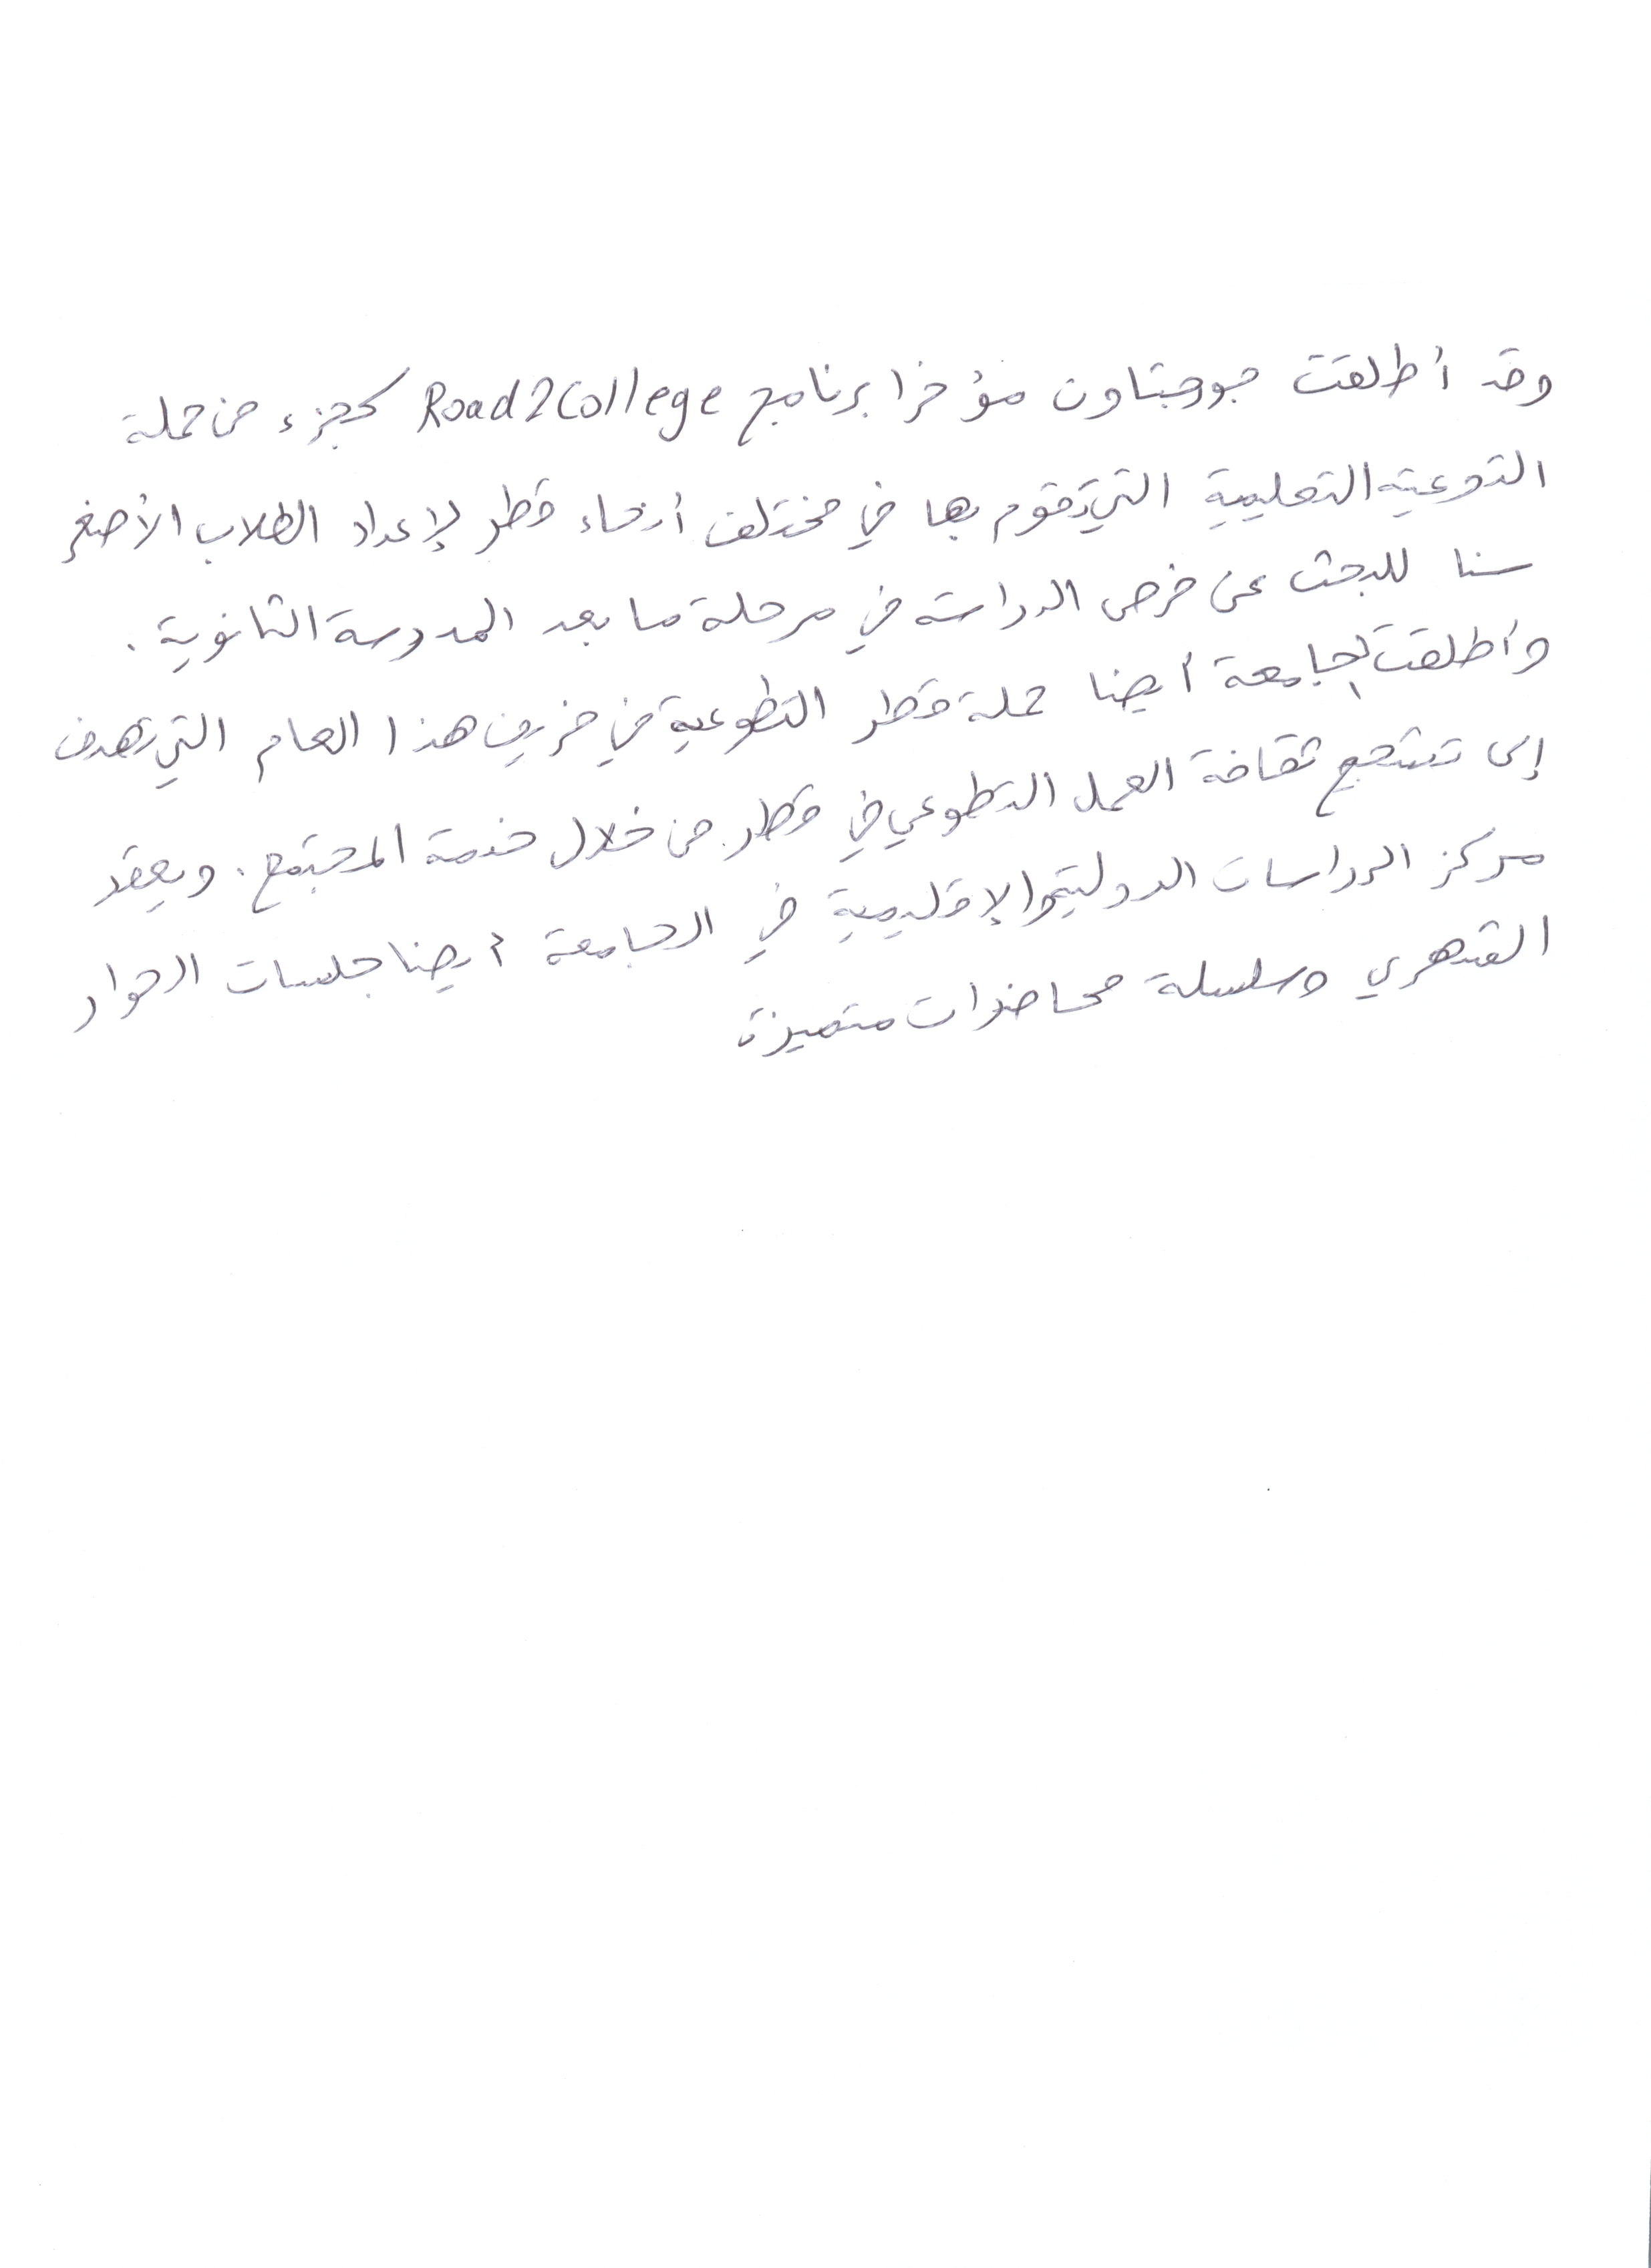 وقد أطلقت جورجتاون مؤخرا برنامج Road2College كجزء من حملة
التوعية التعليمية التي تقوم بها في مختلف أنحاء قطر لإعداد الطلاب الأصغر
سنا للبحث عن فرص الدراسة في مرحلة ما بعد المدرسة الثانوية .
وأطلقت الجامعة أيضا حملة قطر التطوعية في خريف هذا العام التي تهدف
إلى تشجيع ثقافة العمل التطوعي في قطر من خلال خدمة المجتمع . ويعقد
مركز الدراسات الدولية والإقليمية في الجامعة أيضا جلسات الحوار
الشهري وسلسلة محاضرات متميزة